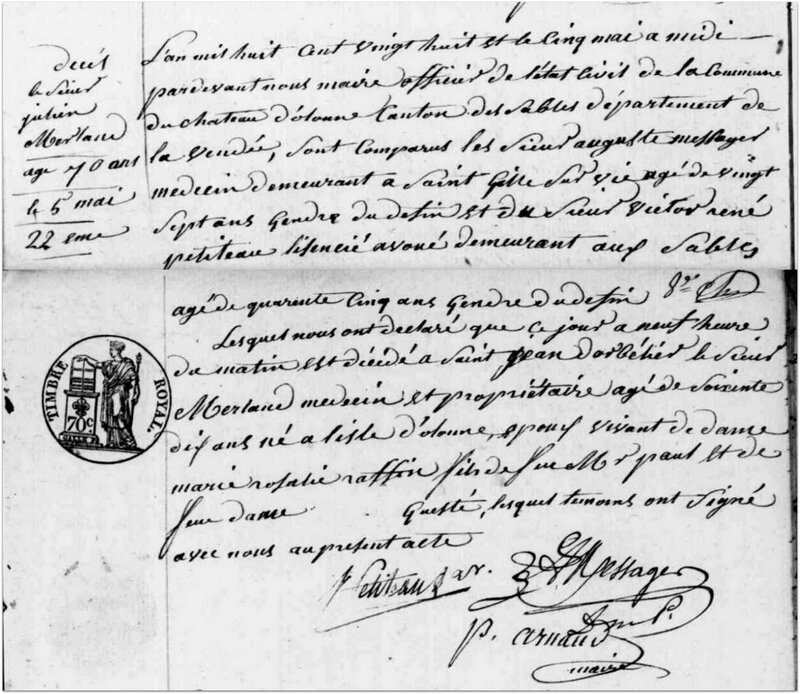 décès
le Sieur
julien
Merland
agé 70 ans
le 5 mai
22 eme
L'an mil huit Cent vingt huit et le Cinq mai a midi
pardevant nous maire officier de l'état Civil de la Commune
du chateau d'olonne Canton des Sables département de
la vendée, sont Comparus les Sieur auguste messager
medecin demeurant a Saint Gille Sur vie agé de vingt
Sept ans Gendre du defin et du Sieur Victor rené
petiteau lisencié avoué demeurant aux Sables
agé de quarente Cinq ans Gendre du defin
Lesquels nous ont déclaré que Ce jour a neuf heure
du matin est décidé a Saint jean d'orbétier le Sieur
Merland medecin et propriétaire agé de Soixente
dix ans né a lisle d'olonne, epoux vivant de dame
marie rosalie raffin fils de feue Mr paul et de
feue dame Guesté, lesquel temoins ont Signé
avec nous au present acte
TIMBRE ROYAL
70c
Petiteau av.
Messager
P. arnaud
maire